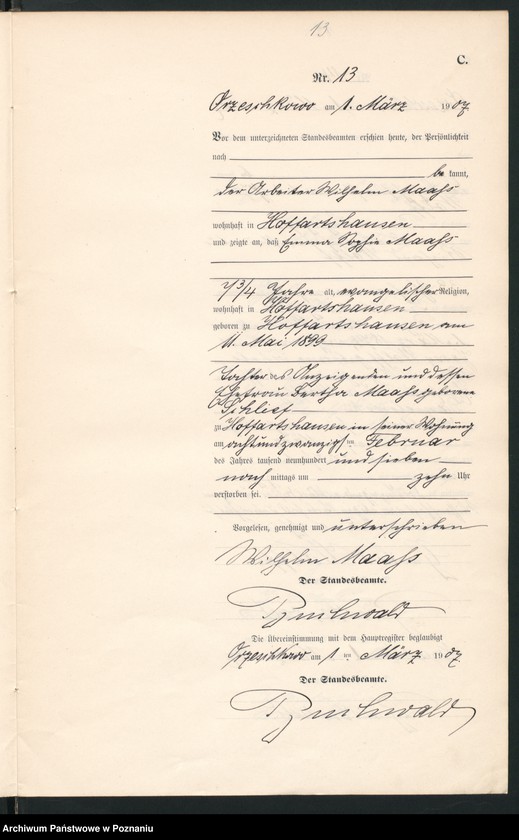 13
C.
Nr. 13
Orzeschkowo am 1. März 1907
Vor dem unterzeichneten Standesbeamten erschien heute, der Persönlichkeit
nach
be kannt,
der Arbeiter Wilhelm Maahs
wohnhaft in Hoffartshausen
und zeigte an, daß Emma Sophie Maahs
7 3/4 Jahre alt, evangelischer Religion,
wohnhaft in Hoffartshausen
geboren zu Hoffartshausen am
11. Mai 1899
Tochter des Anzeigenden und dessen
Ehefrau Bertha Maahs geborene
Schlief
zu Hoffartshausen in seiner Wohnung
am achtundzwanzigsten Februar
des Jahres tausend neunhundert und sieben
nach mittags um zehn Uhr
verstorben sei.
Vorgelesen, genehmigt und unterschrieben
Wilhelm Maahs
Der Standesbeamte.
Die Übereinstimmung mit dem Hauptregister beglaubigt
Orzeschkowo am 1 ten März 1907
Der Standesbeamte.
Archiwum Państwowe w Poznaniu